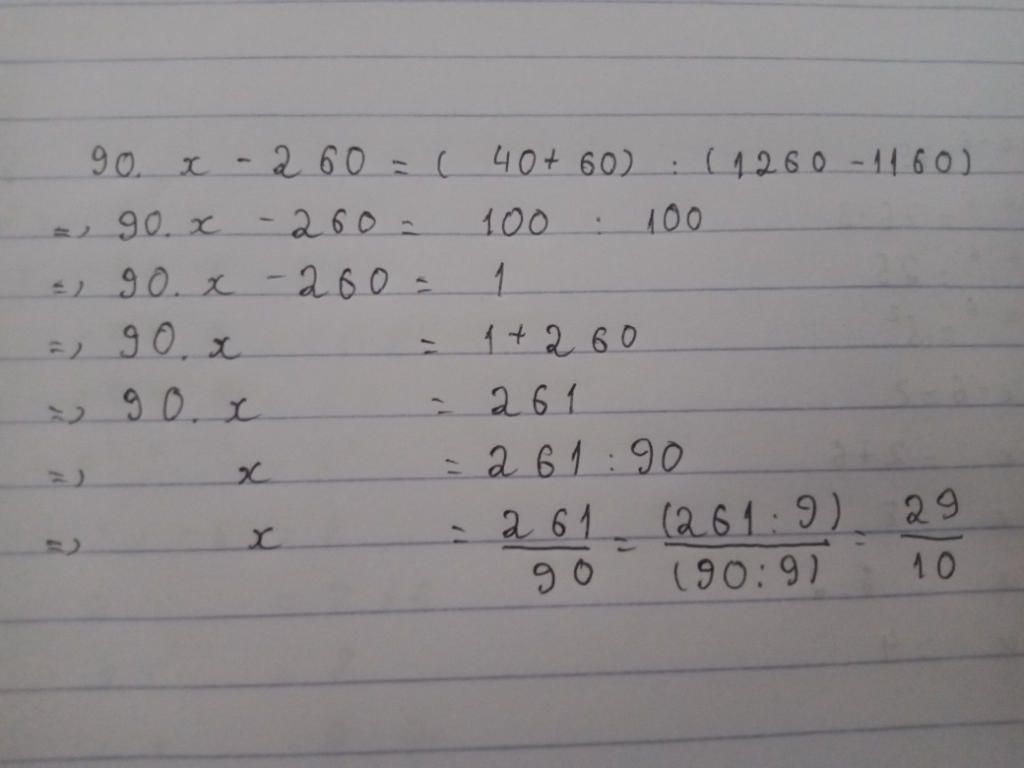 90. x - 260 = ( 40 + 60) : (1260 - 1160)
=> 90. x - 260 = 100 : 100
=> 90. x - 260 = 1
=> 90. x = 1 + 260
=> 90. x = 261
=> x = 261 : 90
=> x = 261/90 = (261 : 9)/(90 : 9) = 29/10